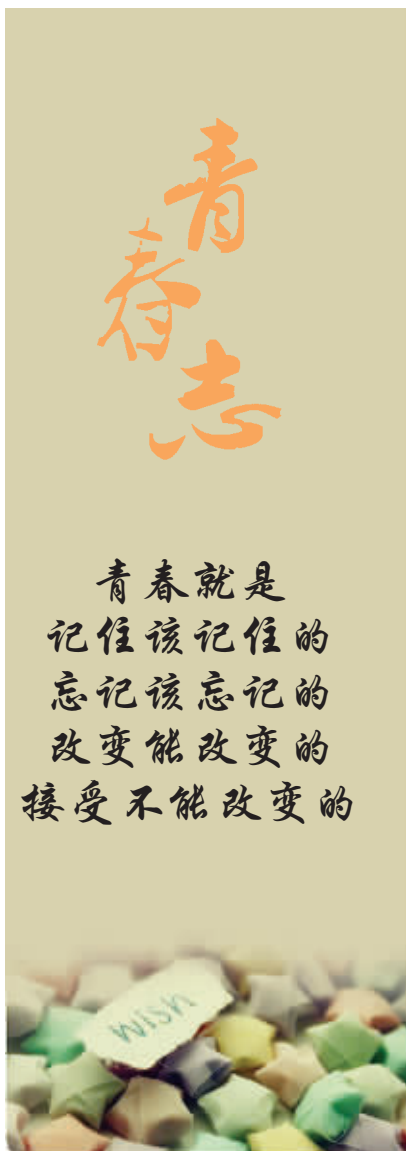 青春志
青春就是
记住该记住的
忘记该忘记的
改变能改变的
接受不能改变的
WISH